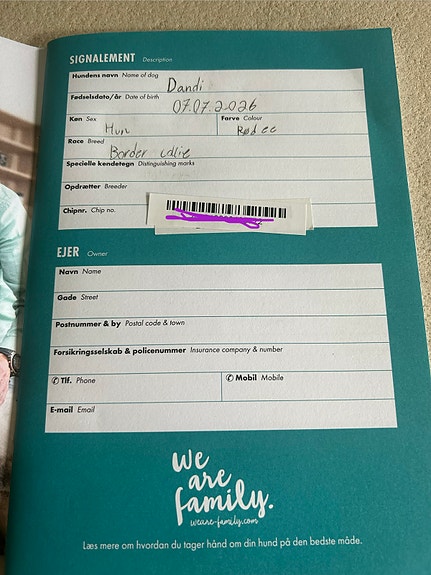 SIGNALEMENT Description
Hundens navn Name of dog
Dandi
Fødselsdato/år Date of birth
07.07.2026
Køn Sex
Hun
Farve Colour
Race Breed
Border
Specielle kendetegn Distinguishing marks
Opdrætter Breeder
Chipnr. Chip no.
EJER Owner
Navn Name
Gade Street
Postnummer & by Postal code & town
Forsikringsselskab & policenummer Insurance company & number
✆ Tlf. Phone
✆ Mobil Mobile
E-mail Email
We
are
family.
weare-family.com
Læs mere om hvordan du tager hånd om din hund på den bedste måde.